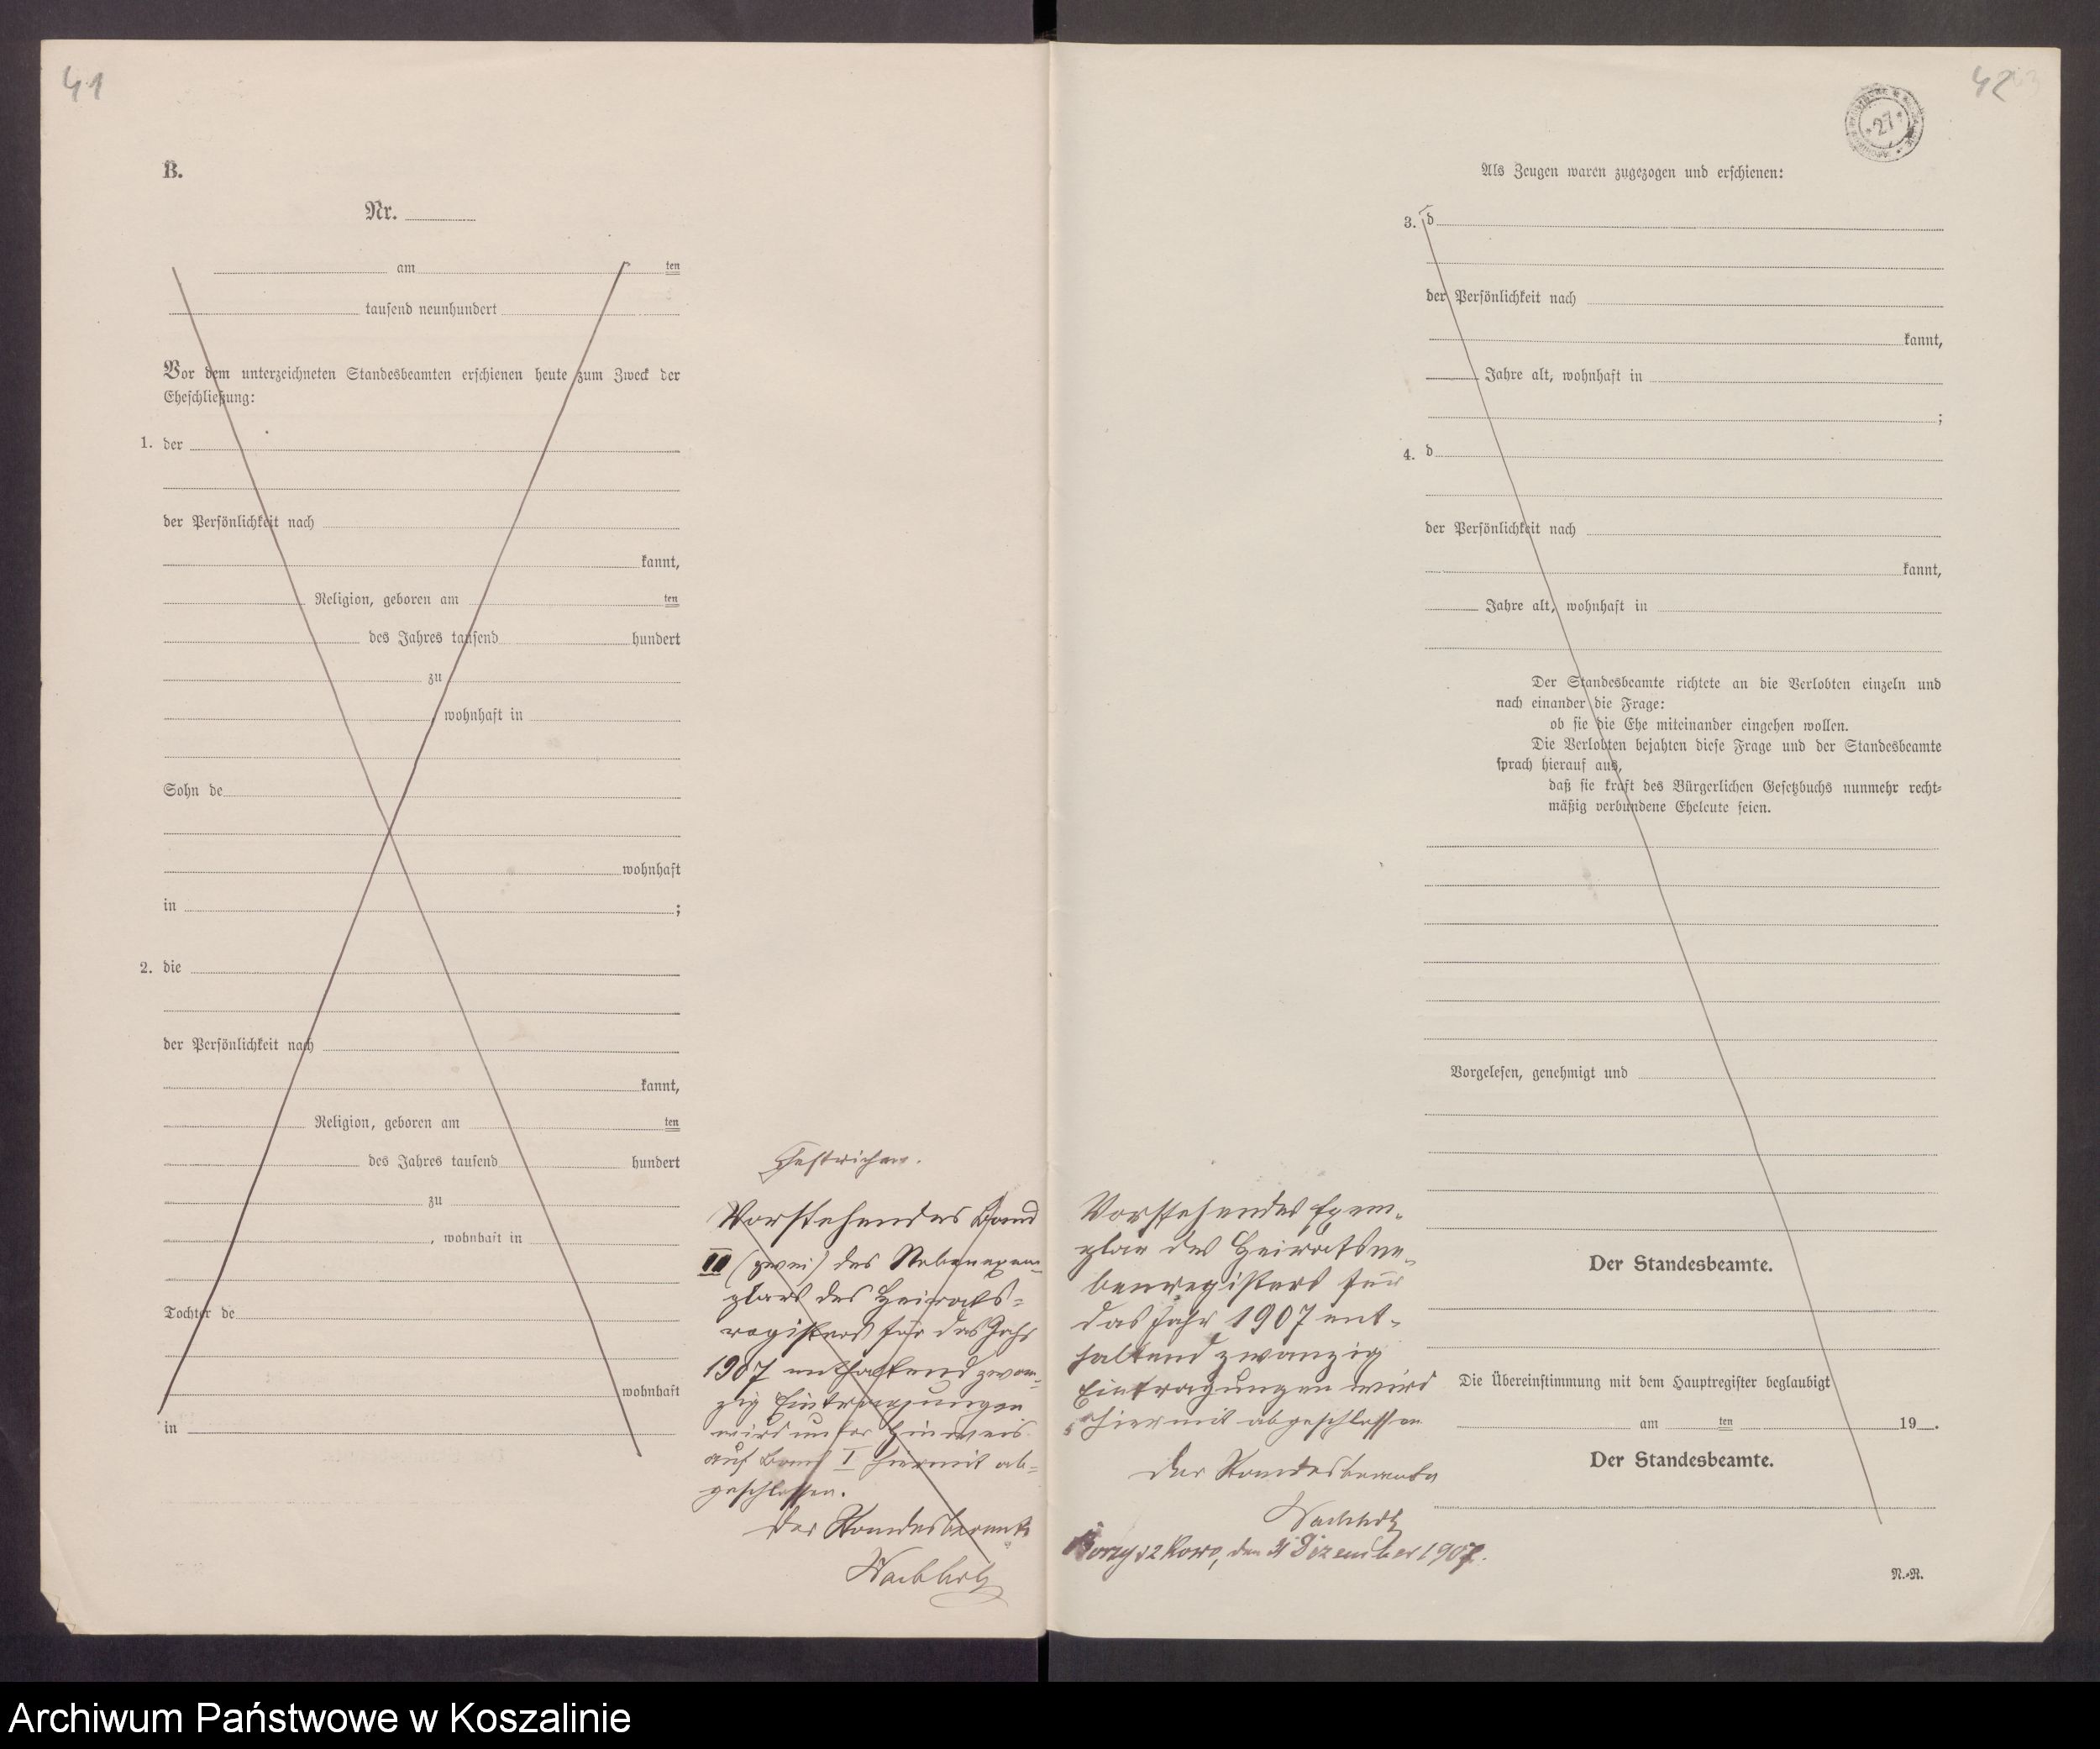 41
B.
Nr.
am ten
tausend neunhundert
Vor dem unterzeichneten Standesbeamten erschienen heute zum Zweck der
Eheschließung:
1. der
der Persönlichkeit nach
kannt,
Religion, geboren am ten
des Jahres tausend hundert
zu
, wohnhaft in
Sohn de
wohnhaft
in ;
2. die
der Persönlichkeit nach
kannt,
Religion, geboren am ten
des Jahres tausend hundert
zu
, wohnhaft in
Tochter de
wohnhaft
in
Gestrichen.
Vorstehendes Band
II (zwei) des Nebenexem-
plars des Heirats-
registers für das Jahr
1907 enthaltend zwan-
zig Eintragungen
wird unter Hinweis
auf Band I hiermit ab-
geschlossen.
Der Standesbeamte
Wachholz
42
27
Als Zeugen waren zugezogen und erschienen:
3. d
der Persönlichkeit nach
kannt,
Jahre alt, wohnhaft in
;
4. d
der Persönlichkeit nach
kannt,
Jahre alt, wohnhaft in
Der Standesbeamte richtete an die Verlobten einzeln und
nach einander die Frage:
ob sie die Ehe miteinander eingehen wollen.
Die Verlobten bejahten diese Frage und der Standesbeamte
sprach hierauf aus,
daß sie kraft des Bürgerlichen Gesetzbuchs nunmehr recht-
mäßig verbundene Eheleute seien.
Vorgelesen, genehmigt und
Der Standesbeamte.
Die Übereinstimmung mit dem Hauptregister beglaubigt
am ten 19 .
Der Standesbeamte.
N.-R.
Vorstehendes Exem-
plar des Heiratsne-
benregisters für
das Jahr 1907 ent-
haltend zwanzig
Eintragungen wird
hiermit abgeschlossen
Der Standesbeamte
Wachholz
den 31 Dezember 1907.
Archiwum Państwowe w Koszalinie